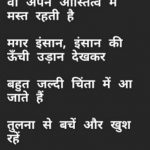 वो अपने अस्तित्व में
मस्त रहती है
मगर इंसान, इंसान की
ऊँची उड़ान देखकर
बहुत जल्दी चिंता में आ
जाते हैं
तुलना से बचें और खुश
रहें